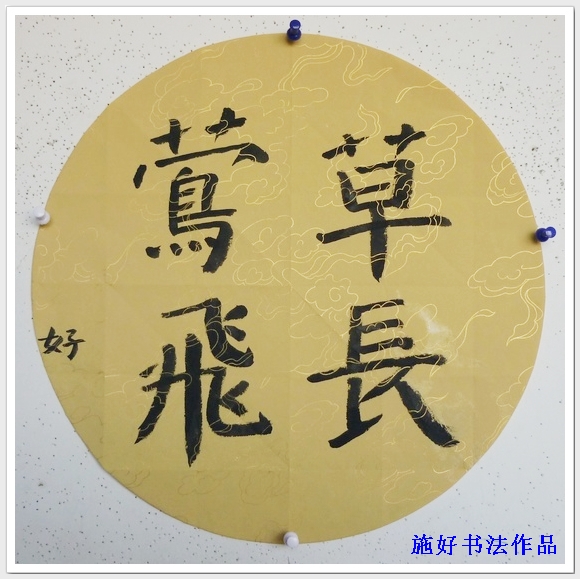 草長
鶯飛
好
施好书法作品